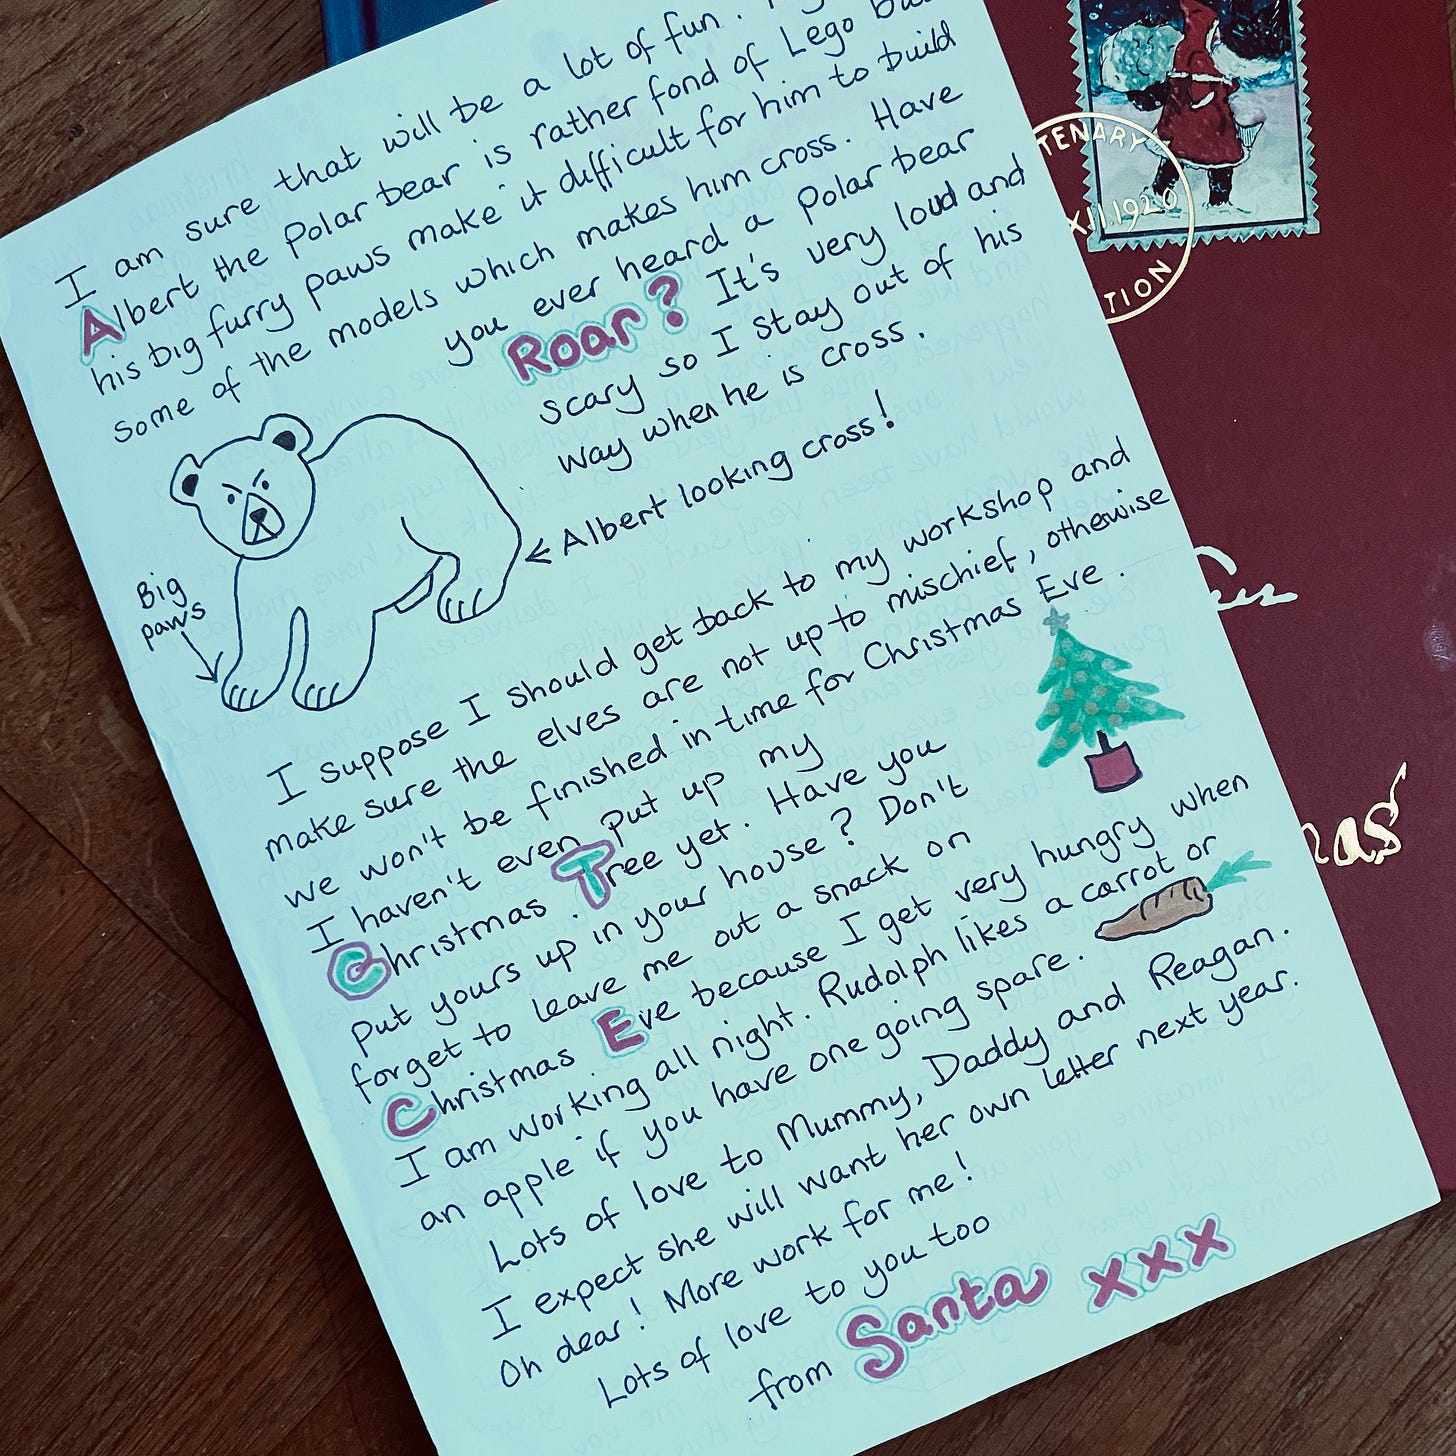 I am sure that will be a lot of fun.
Albert the Polar bear is rather fond of Lego but
his big furry paws make it difficult for him to build
some of the models which makes him cross. Have
you ever heard a Polar bear
Roar? It's very loud and
scary so I stay out of his
way when he is cross.
← Albert looking cross!
Big
paws
I suppose I should get back to my workshop and
make sure the elves are not up to mischief, otherwise
we won't be finished in time for Christmas Eve.
I haven't even put up my
Christmas Tree yet. Have you
put yours up in your house? Don't
forget to leave me out a snack on
Christmas Eve because I get very hungry when
I am working all night. Rudolph likes a carrot or
an apple if you have one going spare.
Lots of love to Mummy, Daddy and Reagan.
I expect she will want her own letter next year.
Oh dear! More work for me!
Lots of love to you too
from Santa xxx
TENARY
XII 1920
TION
mas